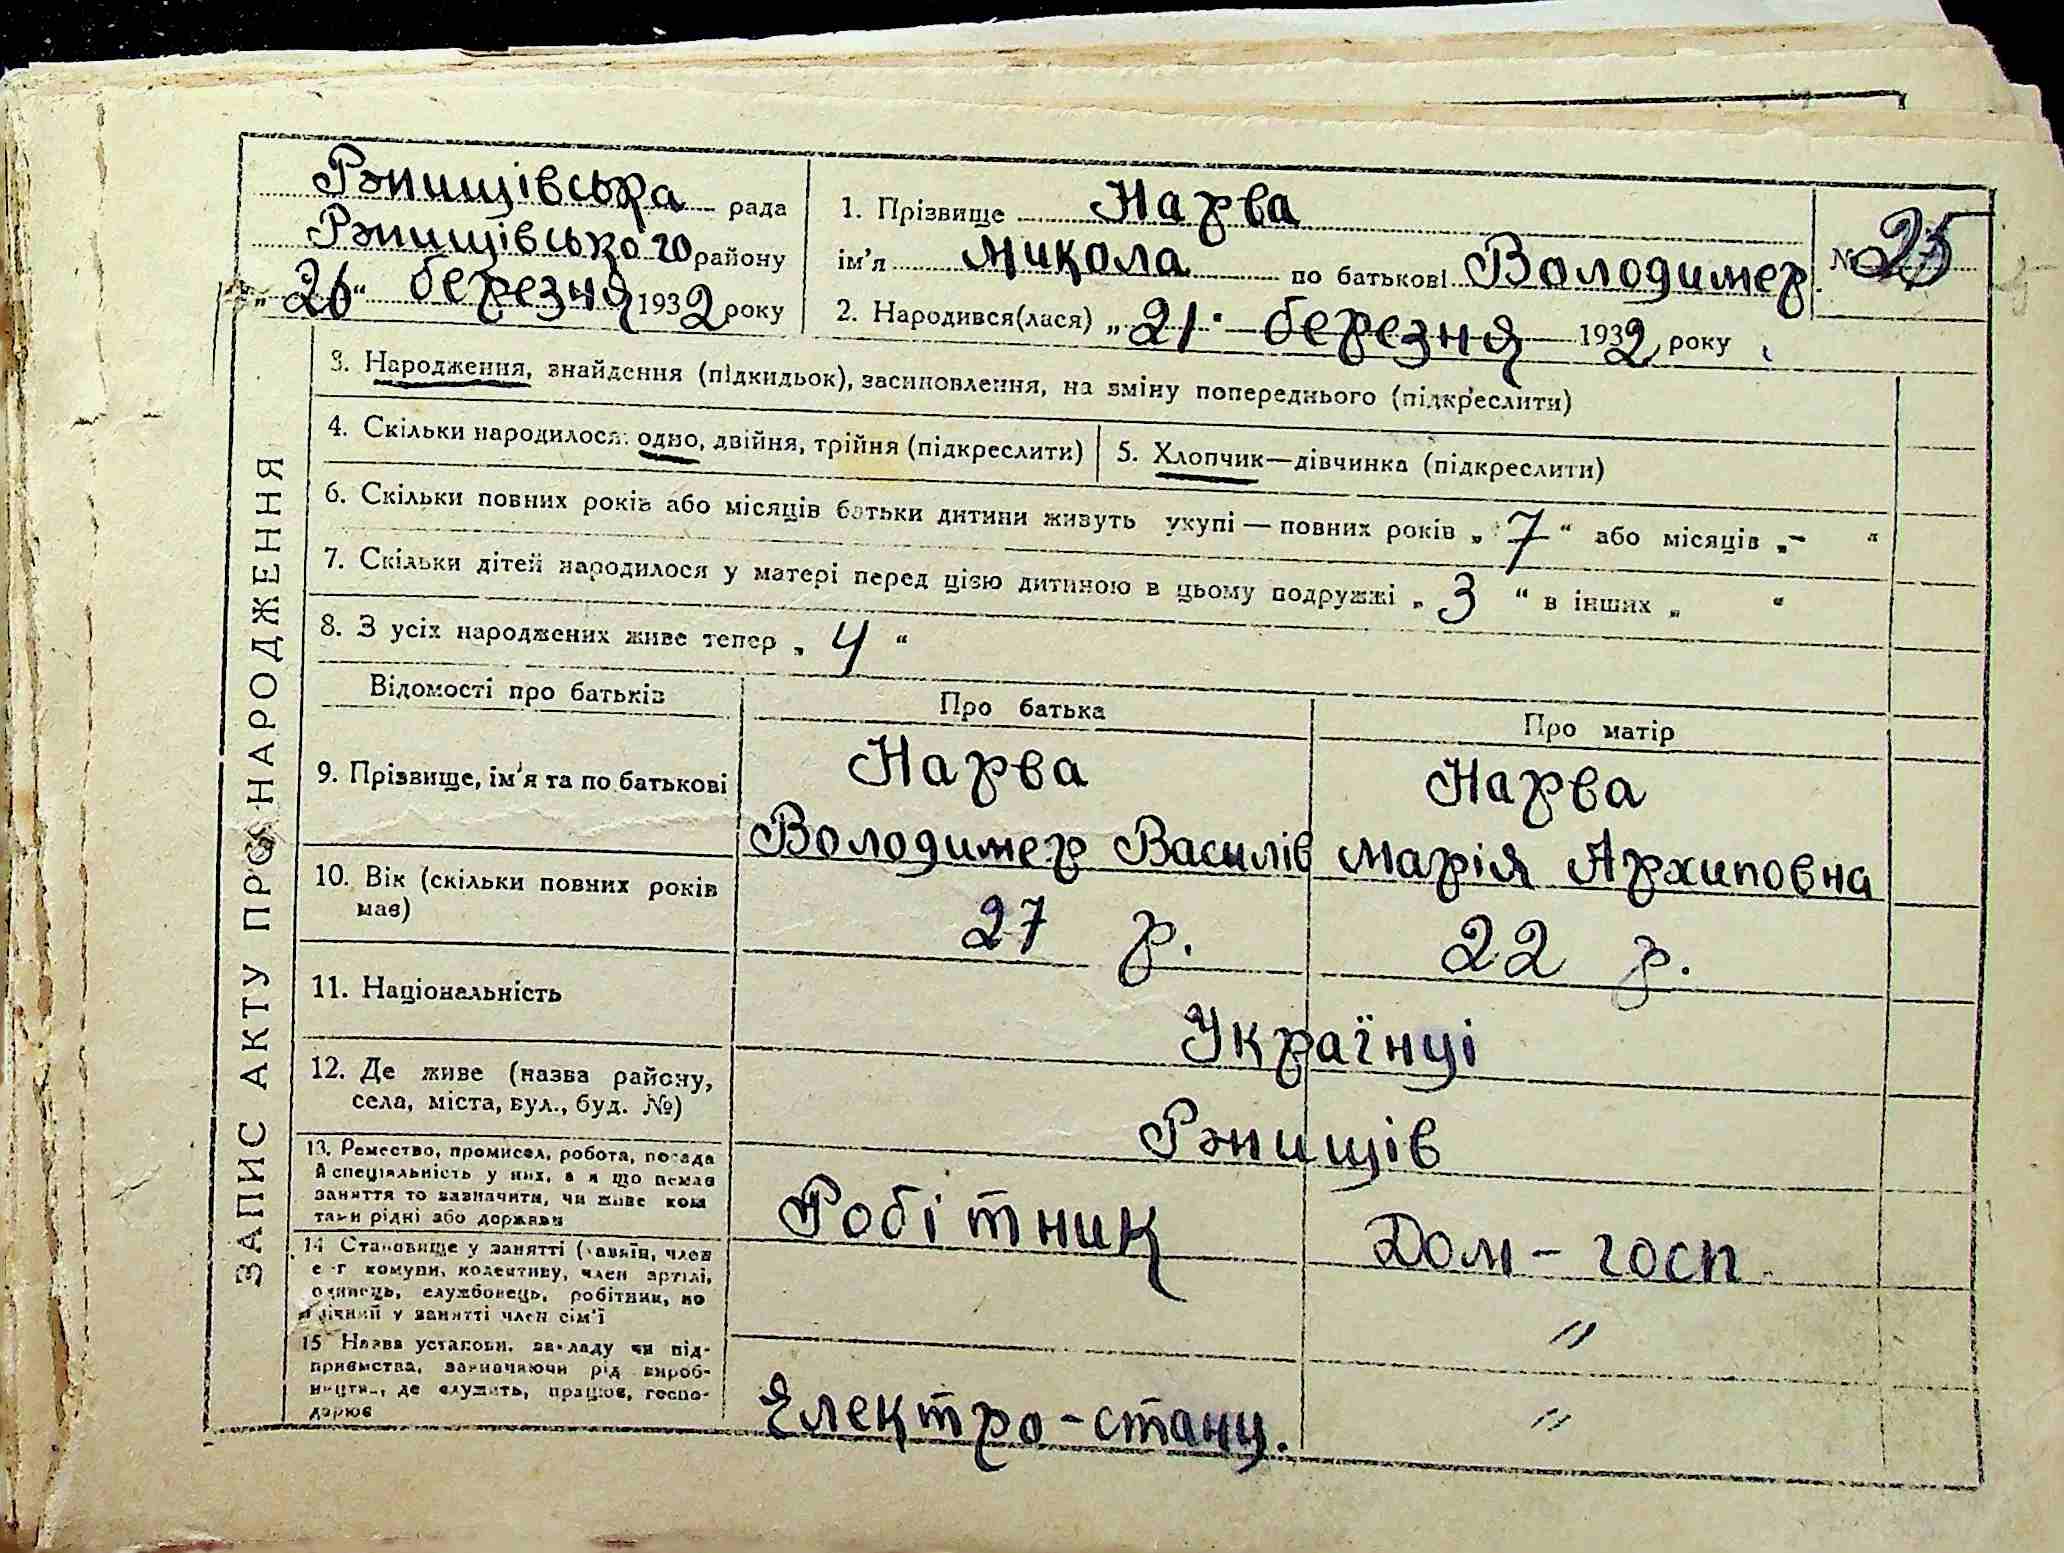 Ржищівська рада
Ржищівського району
„26“ березня 1932 року
1. Прізвище Нарва
ім'я Микола по батькові Володимер.
2. Народився(лася) „21“ березня 1932 року
№ 25
ЗАПИС АКТУ ПРО НАРОДЖЕННЯ
3. Народження, знайдення (підкидьок), засиновлення, на зміну попереднього (підкреслити)
4. Скільки народилося: одно, двійня, трійня (підкреслити)
5. Хлопчик—дівчинка (підкреслити)
6. Скільки повних років або місяців батьки дитини живуть укупі — повних років „ 7 “ або місяців „ – “
7. Скільки дітей народилося у матері перед цією дитиною в цьому подружжі „ 3 “ в інших „ “
8. З усіх народжених живе тепер „ 4 “
Відомості про батьків
Про батька
Про матір
9. Прізвище, ім'я та по батькові
Нарва
Володимер Василів
Нарва
Марія Архиповна
10. Вік (скільки повних років
має)
27 р.
22 р.
11. Національність
Українці
12. Де живе (назва району,
села, міста, вул., буд. №)
Ржищів
13. Ремество, промисел, робота, посада
й спеціяльність у них, а я що немає
заняття то зазначити, чи живе кош
тами рідні або держави
Робітник
Дом-госп
14 Становище у занятті (хазяїн, член
с-г комуни, колективу, член артілі,
одинець, службовець, робітник, по
мічний у занятті член сім'ї
"
15 Назва установи, закладу чи під-
приємства, зазначаючи рід вироб-
ництва, де служить, працює, госпо-
дарює
Електро-станц.
"